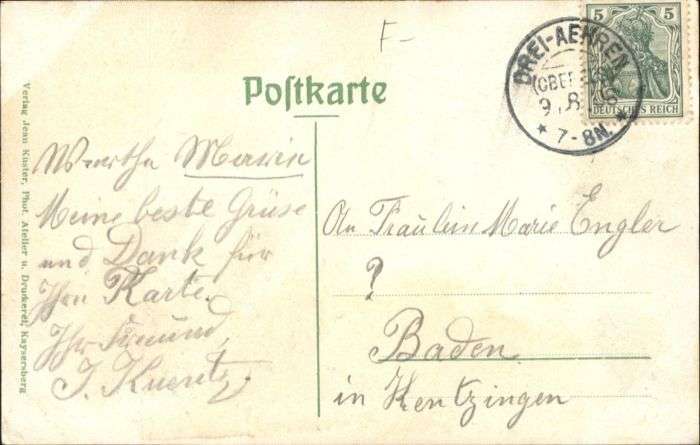 F-
5 5
DEUTSCHES REICH
DREI-AEHREN
9.8.
* 7-8N. *
Postkarte
Werthe Marie
Meine beste Grüse
und Dank für
Ihre Karte.
Ihr Freund,
J. Kuentz.
An Fräulein Marie Engler
?
Baden
in Kentzingen
Verlag Jean Kuster, Phot. Atelier u. Druckerei, Kaysersberg